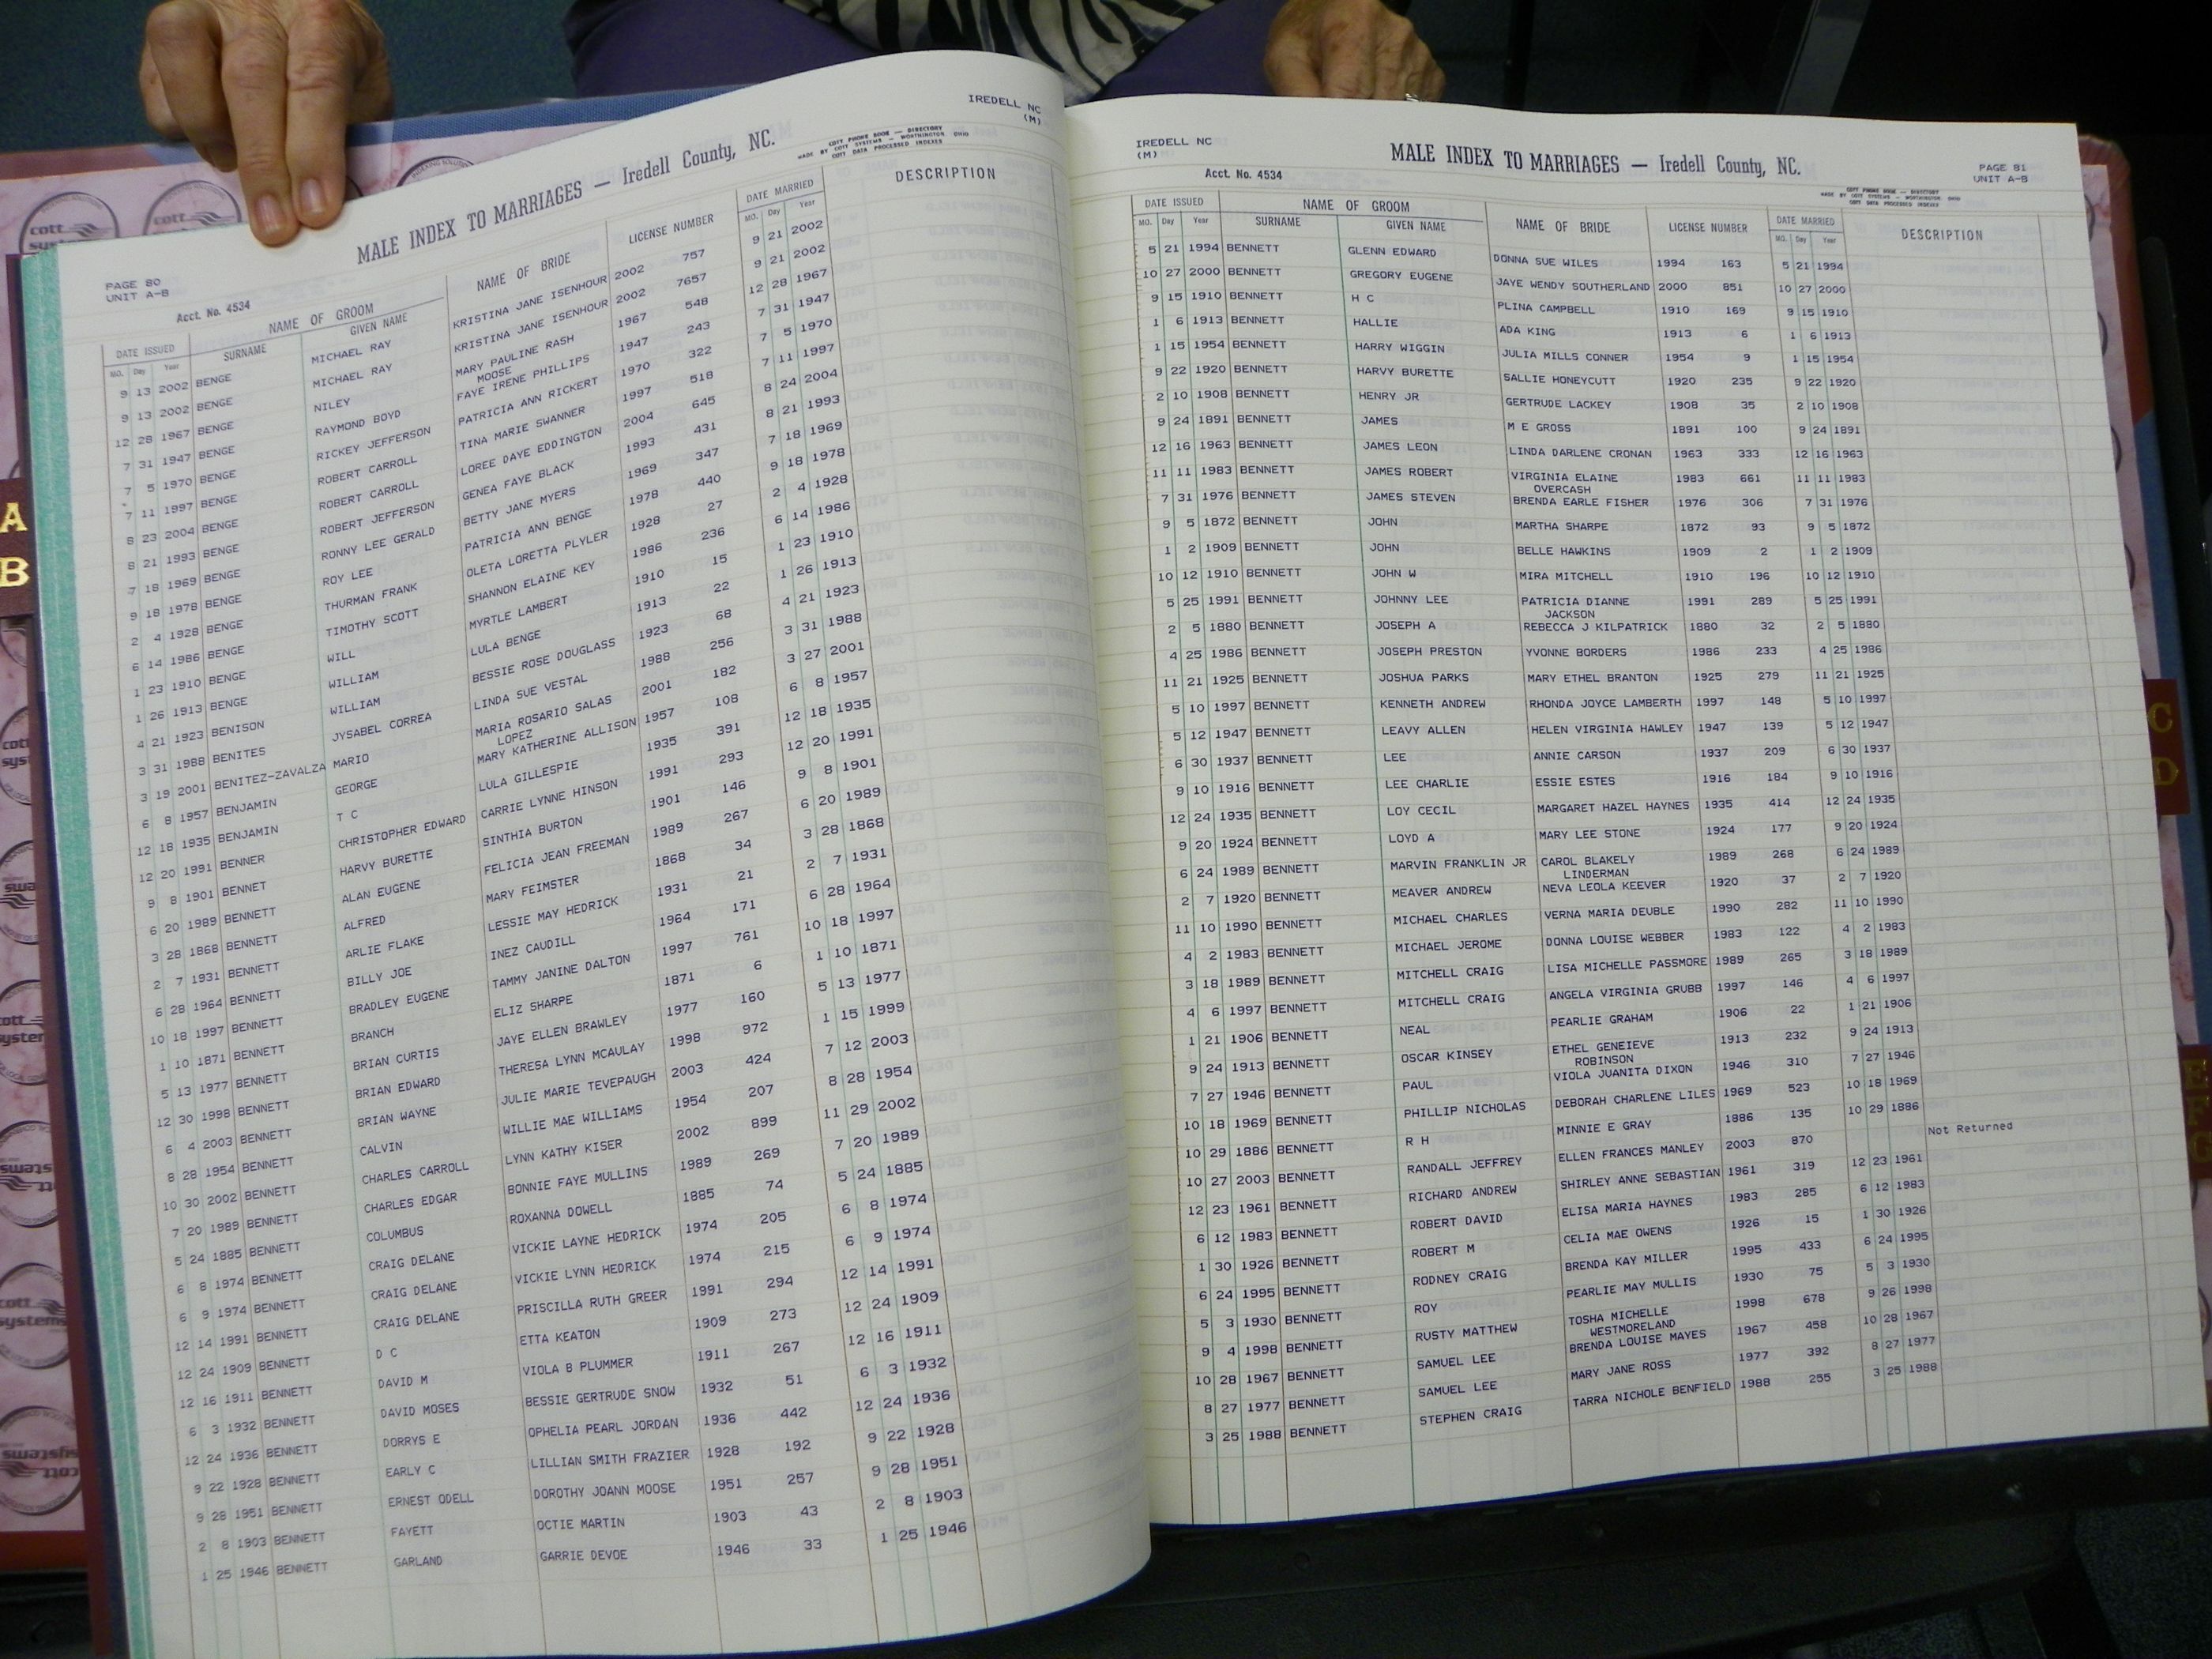 IREDELL NC
(M)
COTT PHONE BOOK — DIRECTORY
MADE BY COTT SYSTEMS — WORTHINGTON OHIO
COTT DATA PROCESSED INDEXES
MALE INDEX TO MARRIAGES — Iredell County, NC.
PAGE 80
UNIT A-B
Acct. No. 4534
DATE ISSUED NAME OF GROOM NAME OF BRIDE LICENSE NUMBER DATE MARRIED DESCRIPTION
MO. Day Year SURNAME GIVEN NAME MO. Day Year
9 13 2002 BENGE MICHAEL RAY KRISTINA JANE ISENHOUR 2002 757 9 21 2002
9 13 2002 BENGE MICHAEL RAY KRISTINA JANE ISENHOUR 2002 7657 9 21 2002
12 28 1967 BENGE NILEY MARY PAULINE RASH 1967 548 12 28 1967
MOOSE
7 31 1947 BENGE RAYMOND BOYD FAYE IRENE PHILLIPS 1947 243 7 31 1947
7 5 1970 BENGE RICKEY JEFFERSON PATRICIA ANN RICKERT 1970 322 7 5 1970
7 11 1997 BENGE ROBERT CARROLL TINA MARIE SWANNER 1997 518 7 11 1997
8 23 2004 BENGE ROBERT CARROLL LOREE DAYE EDDINGTON 2004 645 8 24 2004
8 21 1993 BENGE ROBERT JEFFERSON GENEA FAYE BLACK 1993 431 8 21 1993
7 18 1969 BENGE RONNY LEE GERALD BETTY JANE MYERS 1969 347 7 18 1969
9 18 1978 BENGE ROY LEE PATRICIA ANN BENGE 1978 440 9 18 1978
2 4 1928 BENGE THURMAN FRANK OLETA LORETTA PLYLER 1928 27 2 4 1928
6 14 1986 BENGE TIMOTHY SCOTT SHANNON ELAINE KEY 1986 236 6 14 1986
1 23 1910 BENGE WILL MYRTLE LAMBERT 1910 15 1 23 1910
1 26 1913 BENGE WILLIAM LULA BENGE 1913 22 1 26 1913
4 21 1923 BENISON WILLIAM BESSIE ROSE DOUGLASS 1923 68 4 21 1923
3 31 1988 BENITES JYSABEL CORREA LINDA SUE VESTAL 1988 256 3 31 1988
3 19 2001 BENITEZ-ZAVALZA MARIO MARIA ROSARIO SALAS 2001 182 3 27 2001
LOPEZ
6 8 1957 BENJAMIN GEORGE MARY KATHERINE ALLISON 1957 108 6 8 1957
12 18 1935 BENJAMIN T C LULA GILLESPIE 1935 391 12 18 1935
12 20 1991 BENNER CHRISTOPHER EDWARD CARRIE LYNNE HINSON 1991 293 12 20 1991
9 8 1901 BENNET HARVY BURETTE SINTHIA BURTON 1901 146 9 8 1901
6 20 1989 BENNETT ALAN EUGENE FELICIA JEAN FREEMAN 1989 267 6 20 1989
3 28 1868 BENNETT ALFRED MARY FEIMSTER 1868 34 3 28 1868
2 7 1931 BENNETT ARLIE FLAKE LESSIE MAY HEDRICK 1931 21 2 7 1931
6 28 1964 BENNETT BILLY JOE INEZ CAUDILL 1964 171 6 28 1964
10 18 1997 BENNETT BRADLEY EUGENE TAMMY JANINE DALTON 1997 761 10 18 1997
1 10 1871 BENNETT BRANCH ELIZ SHARPE 1871 6 1 10 1871
5 13 1977 BENNETT BRIAN CURTIS JAYE ELLEN BRAWLEY 1977 160 5 13 1977
12 30 1998 BENNETT BRIAN EDWARD THERESA LYNN MCAULAY 1998 972 1 15 1999
6 4 2003 BENNETT BRIAN WAYNE JULIE MARIE TEVEPAUGH 2003 424 7 12 2003
8 28 1954 BENNETT CALVIN WILLIE MAE WILLIAMS 1954 207 8 28 1954
10 30 2002 BENNETT CHARLES CARROLL LYNN KATHY KISER 2002 899 11 29 2002
7 20 1989 BENNETT CHARLES EDGAR BONNIE FAYE MULLINS 1989 269 7 20 1989
5 24 1885 BENNETT COLUMBUS ROXANNA DOWELL 1885 74 5 24 1885
6 8 1974 BENNETT CRAIG DELANE VICKIE LAYNE HEDRICK 1974 205 6 8 1974
6 9 1974 BENNETT CRAIG DELANE VICKIE LYNN HEDRICK 1974 215 6 9 1974
12 14 1991 BENNETT CRAIG DELANE PRISCILLA RUTH GREER 1991 294 12 14 1991
12 24 1909 BENNETT D C ETTA KEATON 1909 273 12 24 1909
12 16 1911 BENNETT DAVID M VIOLA B PLUMMER 1911 267 12 16 1911
6 3 1932 BENNETT DAVID MOSES BESSIE GERTRUDE SNOW 1932 51 6 3 1932
12 24 1936 BENNETT DORRYS E OPHELIA PEARL JORDAN 1936 442 12 24 1936
9 22 1928 BENNETT EARLY C LILLIAN SMITH FRAZIER 1928 192 9 22 1928
9 28 1951 BENNETT ERNEST ODELL DOROTHY JOANN MOOSE 1951 257 9 28 1951
2 8 1903 BENNETT FAYETT OCTIE MARTIN 1903 43 2 8 1903
1 25 1946 BENNETT GARLAND GARRIE DEVOE 1946 33 1 25 1946
IREDELL NC
(M)
MALE INDEX TO MARRIAGES — Iredell County, NC.
PAGE 81
UNIT A-B
Acct. No. 4534
COTT PHONE BOOK — DIRECTORY
MADE BY COTT SYSTEMS — WORTHINGTON OHIO
COTT DATA PROCESSED INDEXES
DATE ISSUED NAME OF GROOM NAME OF BRIDE LICENSE NUMBER DATE MARRIED DESCRIPTION
MO. Day Year SURNAME GIVEN NAME MO. Day Year
5 21 1994 BENNETT GLENN EDWARD DONNA SUE WILES 1994 163 5 21 1994
10 27 2000 BENNETT GREGORY EUGENE JAYE WENDY SOUTHERLAND 2000 851 10 27 2000
9 15 1910 BENNETT H C PLINA CAMPBELL 1910 169 9 15 1910
1 6 1913 BENNETT HALLIE ADA KING 1913 6 1 6 1913
1 15 1954 BENNETT HARRY WIGGIN JULIA MILLS CONNER 1954 9 1 15 1954
9 22 1920 BENNETT HARVY BURETTE SALLIE HONEYCUTT 1920 235 9 22 1920
2 10 1908 BENNETT HENRY JR GERTRUDE LACKEY 1908 35 2 10 1908
9 24 1891 BENNETT JAMES M E GROSS 1891 100 9 24 1891
12 16 1963 BENNETT JAMES LEON LINDA DARLENE CRONAN 1963 333 12 16 1963
11 11 1983 BENNETT JAMES ROBERT VIRGINIA ELAINE 1983 661 11 11 1983
OVERCASH
7 31 1976 BENNETT JAMES STEVEN BRENDA EARLE FISHER 1976 306 7 31 1976
9 5 1872 BENNETT JOHN MARTHA SHARPE 1872 93 9 5 1872
1 2 1909 BENNETT JOHN BELLE HAWKINS 1909 2 1 2 1909
10 12 1910 BENNETT JOHN W MIRA MITCHELL 1910 196 10 12 1910
5 25 1991 BENNETT JOHNNY LEE PATRICIA DIANNE 1991 289 5 25 1991
JACKSON
2 5 1880 BENNETT JOSEPH A REBECCA J KILPATRICK 1880 32 2 5 1880
4 25 1986 BENNETT JOSEPH PRESTON YVONNE BORDERS 1986 233 4 25 1986
11 21 1925 BENNETT JOSHUA PARKS MARY ETHEL BRANTON 1925 279 11 21 1925
5 10 1997 BENNETT KENNETH ANDREW RHONDA JOYCE LAMBERTH 1997 148 5 10 1997
5 12 1947 BENNETT LEAVY ALLEN HELEN VIRGINIA HAWLEY 1947 139 5 12 1947
6 30 1937 BENNETT LEE ANNIE CARSON 1937 209 6 30 1937
9 10 1916 BENNETT LEE CHARLIE ESSIE ESTES 1916 184 9 10 1916
12 24 1935 BENNETT LOY CECIL MARGARET HAZEL HAYNES 1935 414 12 24 1935
9 20 1924 BENNETT LOYD A MARY LEE STONE 1924 177 9 20 1924
6 24 1989 BENNETT MARVIN FRANKLIN JR CAROL BLAKELY 1989 268 6 24 1989
LINDERMAN
2 7 1920 BENNETT MEAVER ANDREW NEVA LEOLA KEEVER 1920 37 2 7 1920
11 10 1990 BENNETT MICHAEL CHARLES VERNA MARIA DEUBLE 1990 282 11 10 1990
4 2 1983 BENNETT MICHAEL JEROME DONNA LOUISE WEBBER 1983 122 4 2 1983
3 18 1989 BENNETT MITCHELL CRAIG LISA MICHELLE PASSMORE 1989 265 3 18 1989
4 6 1997 BENNETT MITCHELL CRAIG ANGELA VIRGINIA GRUBB 1997 146 4 6 1997
1 21 1906 BENNETT NEAL PEARLIE GRAHAM 1906 22 1 21 1906
9 24 1913 BENNETT OSCAR KINSEY ETHEL GENEIEVE 1913 232 9 24 1913
ROBINSON
7 27 1946 BENNETT PAUL VIOLA JUANITA DIXON 1946 310 7 27 1946
10 18 1969 BENNETT PHILLIP NICHOLAS DEBORAH CHARLENE LILES 1969 523 10 18 1969
10 29 1886 BENNETT R H MINNIE E GRAY 1886 135 10 29 1886
10 27 2003 BENNETT RANDALL JEFFREY ELLEN FRANCES MANLEY 2003 870 Not Returned
12 23 1961 BENNETT RICHARD ANDREW SHIRLEY ANNE SEBASTIAN 1961 319 12 23 1961
6 12 1983 BENNETT ROBERT DAVID ELISA MARIA HAYNES 1983 285 6 12 1983
1 30 1926 BENNETT ROBERT M CELIA MAE OWENS 1926 15 1 30 1926
6 24 1995 BENNETT RODNEY CRAIG BRENDA KAY MILLER 1995 433 6 24 1995
5 3 1930 BENNETT ROY PEARLIE MAY MULLIS 1930 75 5 3 1930
9 4 1998 BENNETT RUSTY MATTHEW TOSHA MICHELLE 1998 678 9 26 1998
WESTMORELAND
10 28 1967 BENNETT SAMUEL LEE BRENDA LOUISE MAYES 1967 458 10 28 1967
8 27 1977 BENNETT SAMUEL LEE MARY JANE ROSS 1977 392 8 27 1977
3 25 1988 BENNETT STEPHEN CRAIG TARRA NICHOLE BENFIELD 1988 255 3 25 1988
A
B
C
D
E
F
G
cott
systems